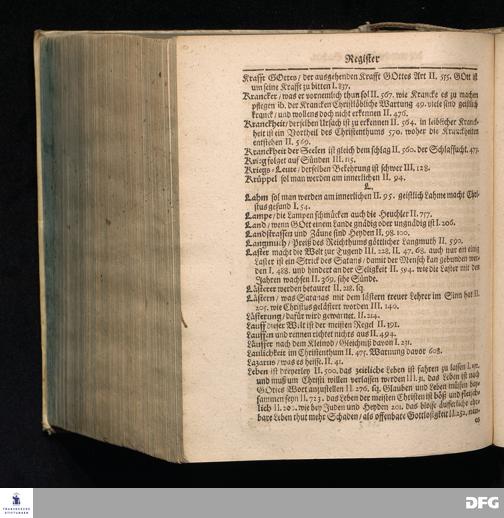 Register
Krafft GOttes / der ausgehenden Krafft GOttes Art II. 595. GOtt ist
um seine Krafft zu bitten I. 837.
Krancker / was er vornemlich thun sol II. 567. wie Krancke es zu machen
pflegen ib. der Krancken Christlöbliche Wartung 49. viele sind geistlich
kranck / und wollens doch nicht erkennen II. 476.
Kranckheit / derselben Ursach ist zu erkennen II. 564. in leiblicher Kranck-
heit ist ein Vortheil des Christenthums 570. woher die Kranckheiten
entstehen II. 569.
Kranckheit der Seelen ist gleich dem schlag II. 560. der Schlaffsucht. 473
Krieg folget auf Sünden III. 115.
Kriegs-Leute / derselben Bekehrung ist schwer III. 128.
Krüppel sol man werden am innerlichen II. 94.
L.
Lahm sol man werden am innerlichen II. 95. geistlich Lahme macht Chri-
stus gesund I. 54.
Lampe / die Lampen schmücken auch die Heuchler II. 757.
Land / wenn GOtt einem Lande gnädig oder ungnädig ist I. 206.
Landstrassen und Zäune sind Heyden II. 98. 100.
Langmuth / Preiß des Reichthums göttlicher Langmuth II. 590.
Laster macht die Welt zur Tugend III. 228. II. 47. 68. auch nur ein einig
Laster ist ein Strick des Satans / damit der Mensch kan gebunden wer-
den I. 488. und hindert an der Seligkeit II. 594. wie die Laster mit den
Jahren wachsen II. 369. siehe Sünde.
Lästerer werden betauret II. 218. sq.
Lästern / was Satanas mit dem lästern treuer Lehrer im Sinn hat II.
205. wie Christus gelästert worden III. 140.
Lästerung / dafür wird gewarnet. II. 214.
Lauff dieser Welt ist der meisten Regel II. 391.
Lauffen und rennen richtet nichts aus II. 494.
Läuffer nach dem Kleinod / Gleichniß davon I. 231.
Laulichkeit im Christenthum II. 475. Warnung davor 608.
Lazarus / was es heisse. II. 41.
Leben ist dreyerley II. 500. das zeitliche Leben ist fahren zu lassen I.
und muß um Christi willen verlassen werden III. 31. das Leben ist nach
GOttes Wort anzustellen II. 276. sq. Glauben und Leben müssen bey-
sammen seyn II. 723. das Leben der meisten Christen ist böß und fleisch-
lich II. 202. wie bey Juden und Heyden 201. das blosse äusserliche ehr-
bare Leben thut mehr Schaden / als offenbare Gottlosigkeit II. 252.
es
FRANCKESCHE
STIFTUNGEN
DFG